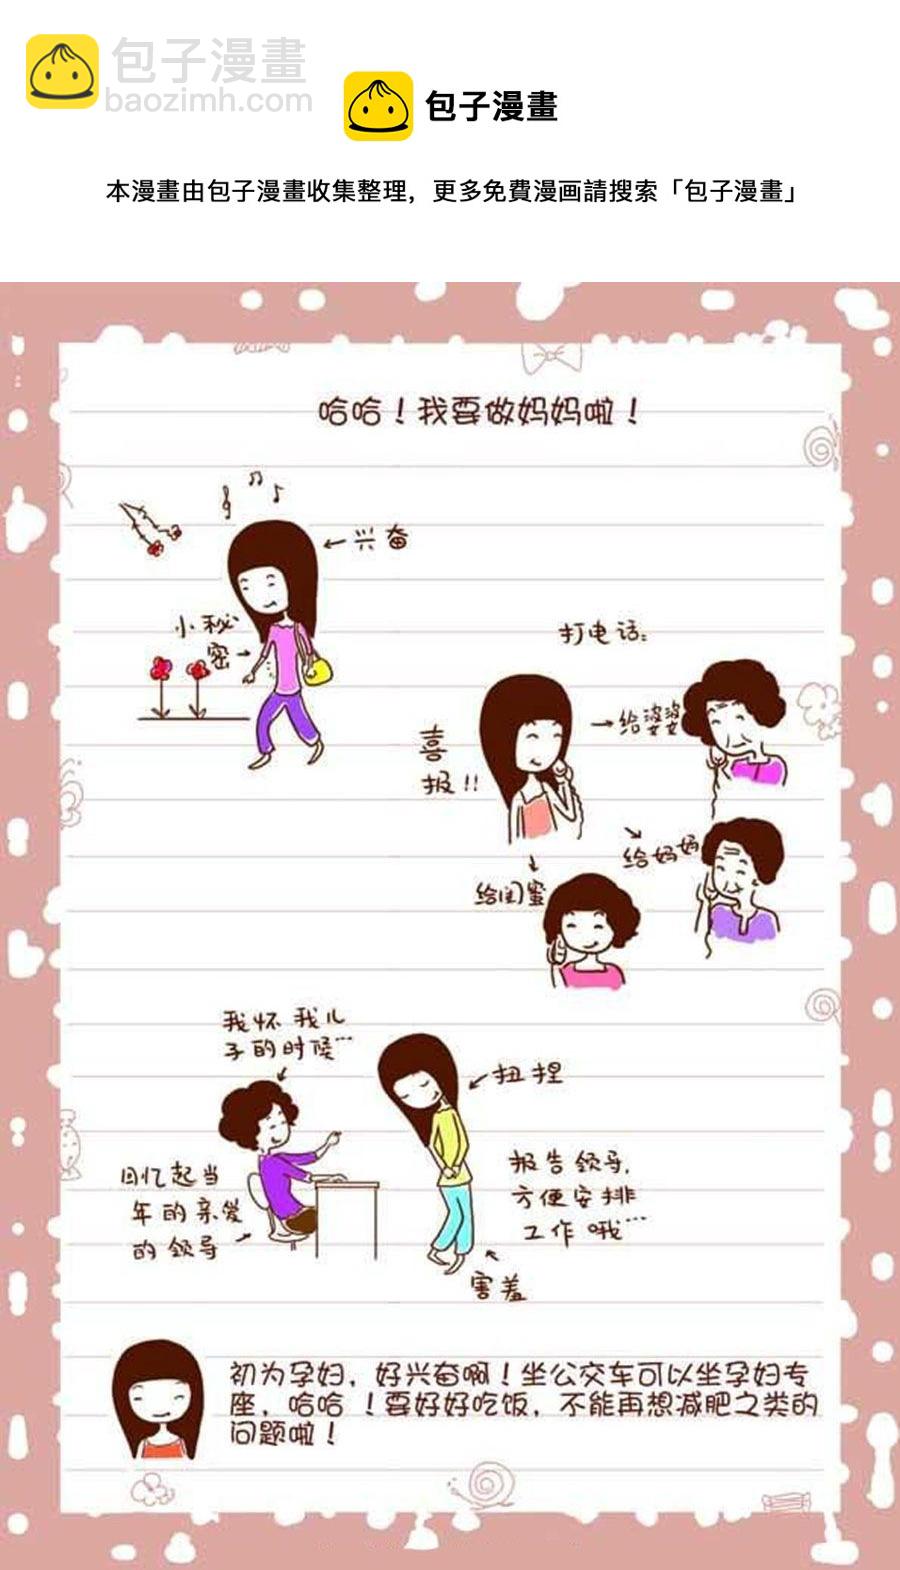 包子漫畫
baozimh.com
包子漫畫
本漫畫由包子漫畫收集整理，更多免費漫画請搜索「包子漫畫」
哈哈！我要做妈妈啦！
兴奋
小秘
密
打电话：
喜
报！！
给婆婆
给妈妈
给闺蜜
我怀我儿
子的时候…
扭捏
回忆起当
年的亲爱
的领导
报告领导，
方便安排
工作哦…
害羞
初为孕妇，好兴奋啊！坐公交车可以坐孕妇专
座，哈哈！要好好吃饭，不能再想减肥之类的
问题啦！